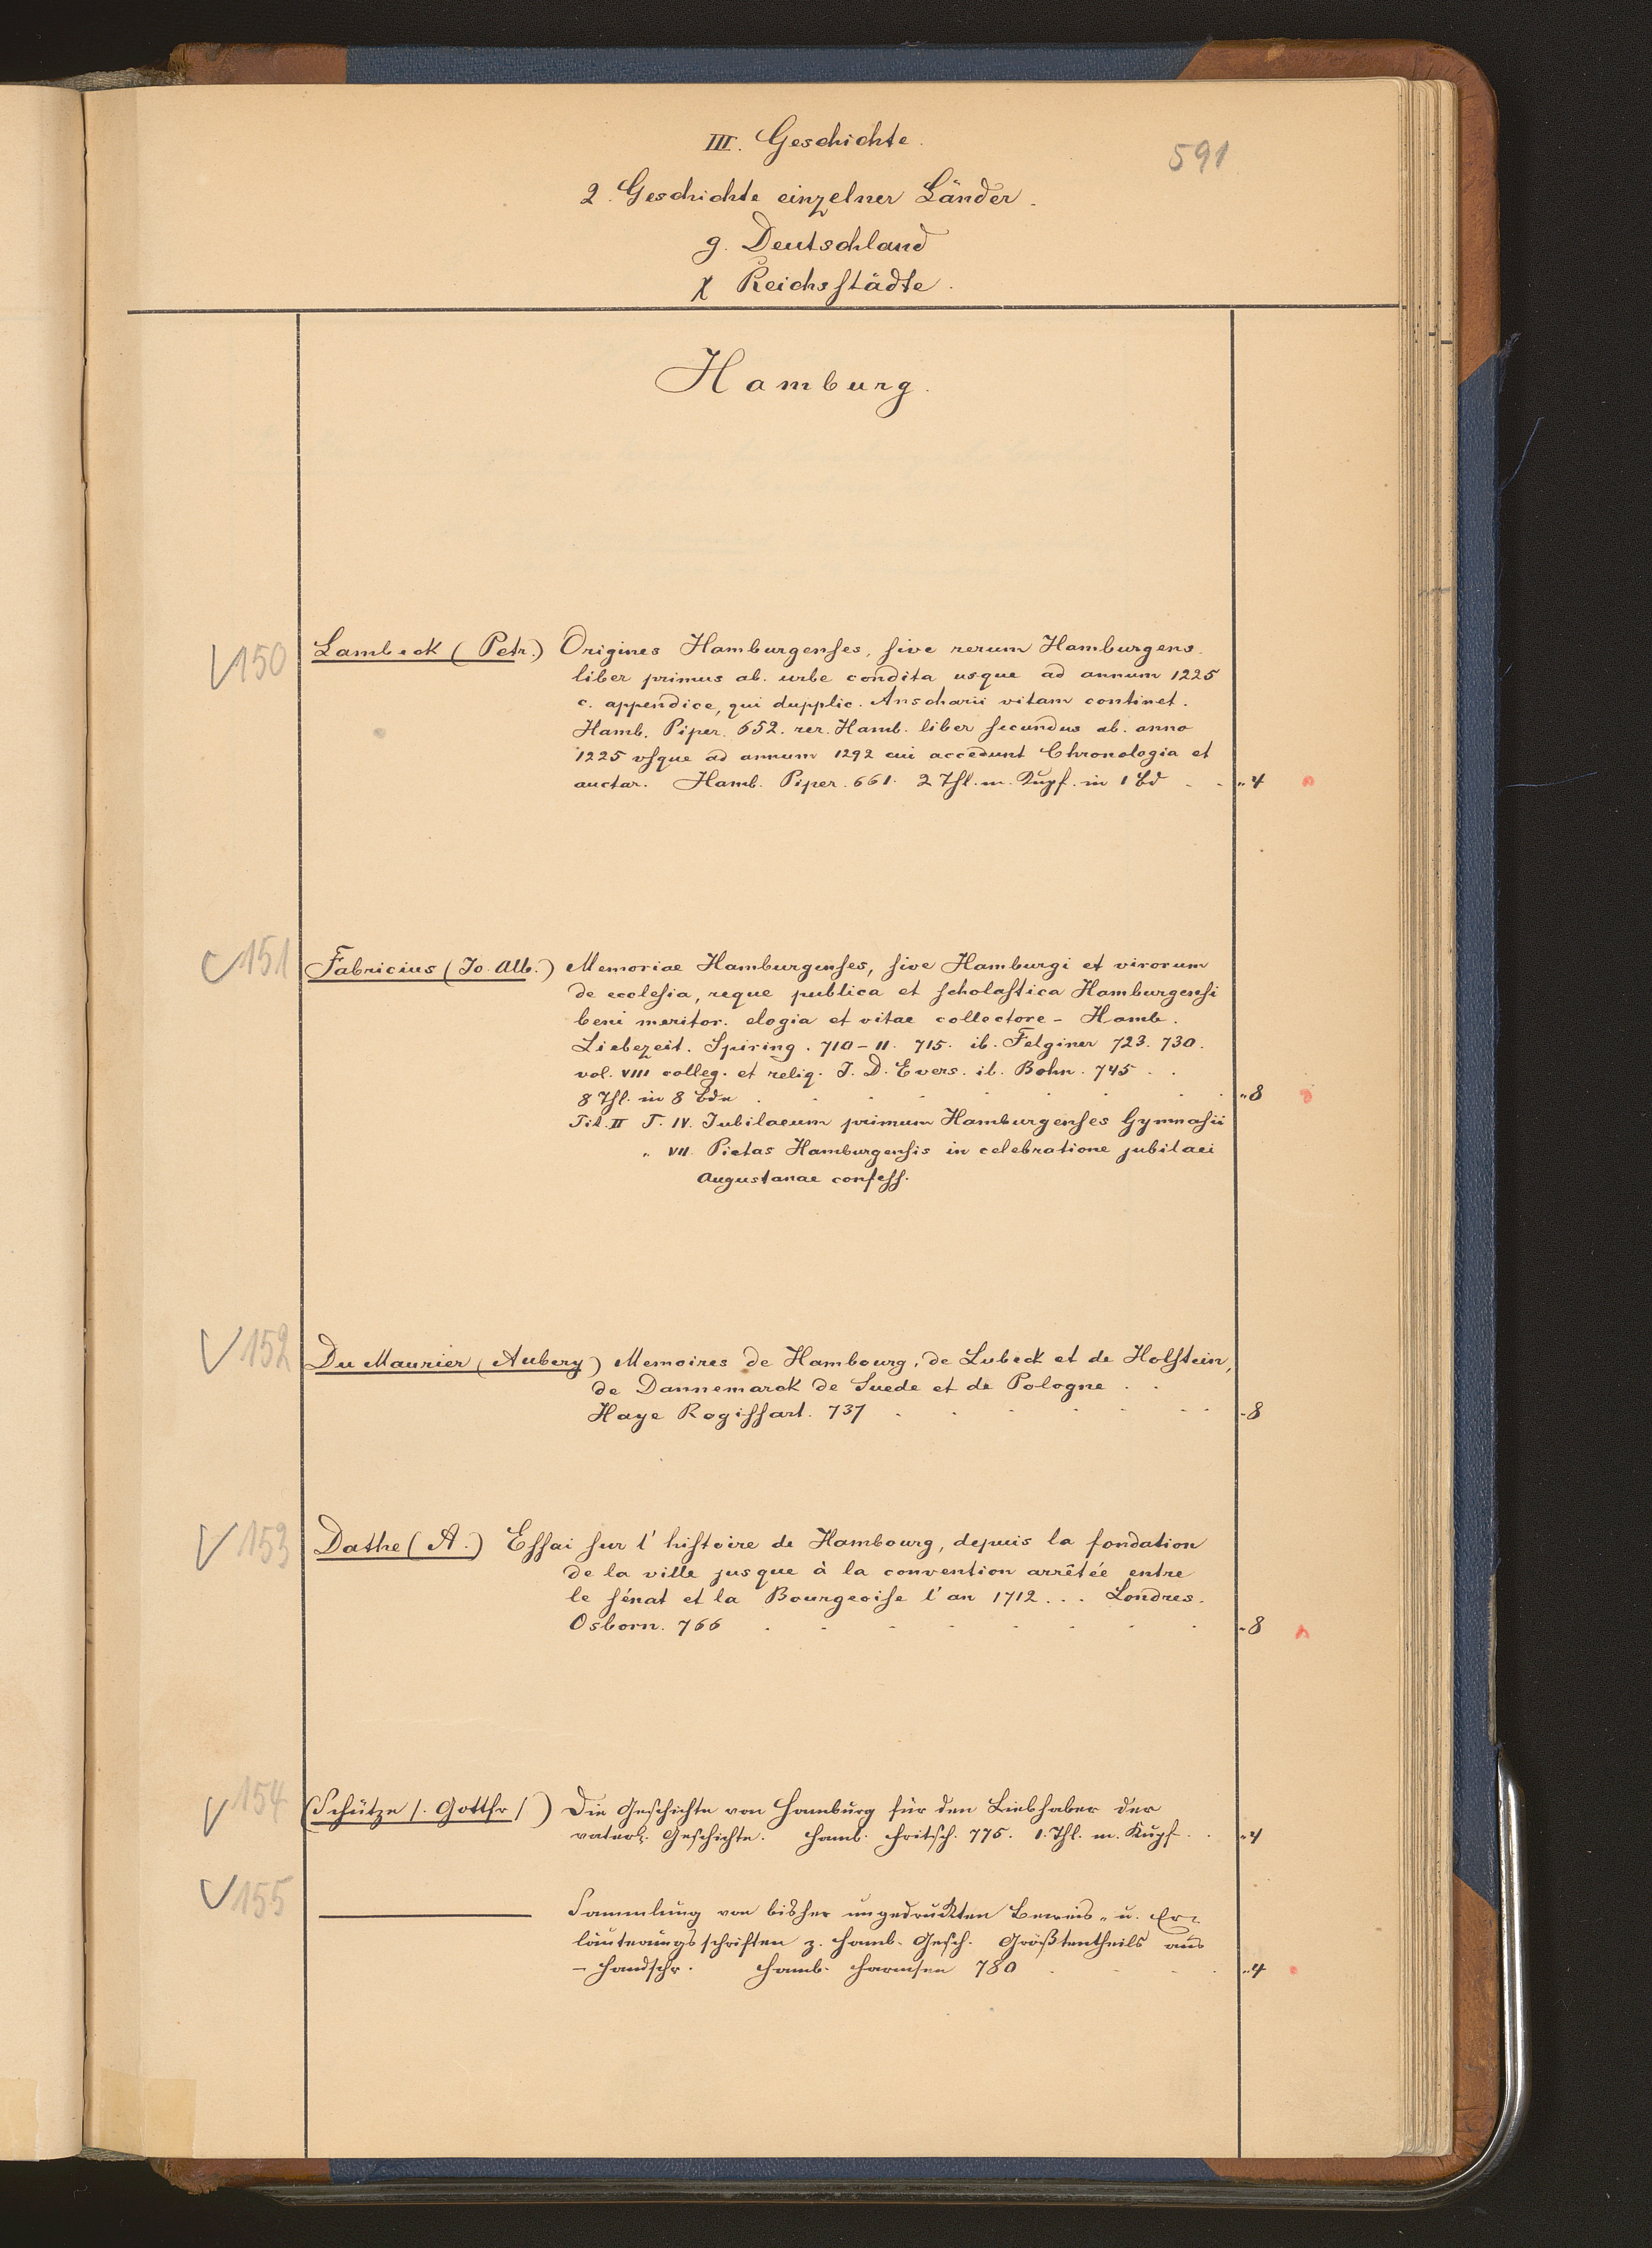 III. Geschichte.
591
2. Geschichte einzelner Länder.
g. Deutschland
χ Reichsstädte.
Hamburg.
150 Lambeck (Petr.) Origines Hamburgenses, sive rerum Hamburgens.
liber primus ab. urbe condita usque ad annum 1225
c. appendice, qui dupplic. Anscharii vitam continet.
Hamb. Piper. 652. rer. Hamb. liber secundus ab. anno
1225 usque ad annum 1292 cui accedunt Chronologia et
auctar. Hamb. Piper. 661. 2 Thl. m. Kupf. in 1 Bd . . „ 4
151 Fabricius (Jo. Alb.) Memoriae Hamburgenses, sive Hamburgi et virorum
de ecclesia, reque publica et scholastica Hamburgensi
beni meritor. elogia et vitae collectore - Hamb.
Liebezeit. Spiring. 710-11. 715. ib. Felginer 723. 730.
vol. VIII colleg. et reliq. J. D. Evers. ib. Bohn. 745 . .
8 Thl. in 8 Bdn . . . . . . . „ 8
Tit. II T. IV. Jubilaeum primum Hamburgenses Gymnasii
„ VII. Pietas Hamburgensis in celebratione jubilaei
Augustanae confess.
152 Du Maurier (Aubery) Memoires de Hambourg, de Lubeck et de Holstein,
de Dannemarck de Suede et de Pologne . .
Haye Rogissart. 737 . . . . . . . - 8
153 Dathe (A.) Essai sur l'histoire de Hambourg, depuis la fondation
de la ville jusque à la convention arrêtée entre
le sénat et la Bourgeoise l'an 1712 . . . Londres.
Osborn. 766 . . . . . . . . - 8
154 (Schütze /. Gottfr /) Die Geschichte von Hamburg für den Liebhaber der
vaterl. Geschichte. Hamb. Fritsch. 775. 1. Thl. m. Kupf. . „ 4
155 ——— Sammlung von bisher ungedruckten Beweis- u. Er-
läuterungsschriften z. Hamb. Gesch. Größtentheils aus
- Handschr. Hamb. Harmsen 780 . . . . „ 4